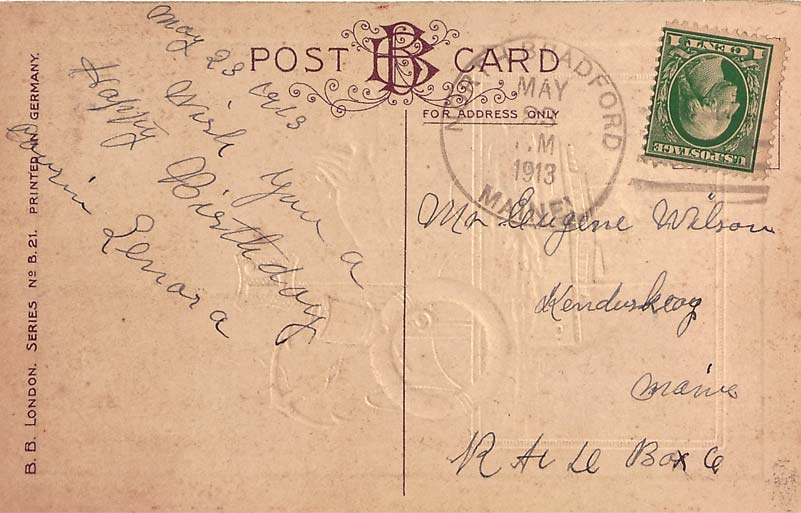 POST CARD
BB
FOR ADDRESS ONLY
May 23 1913
Wish you a
Happy Birthday
Cousin Lenora
NORTH BRADFORD
MAY
23
M
1913
MAINE
1 CENT 1
U.S. POSTAGE
Mr Eugene Wilson
Kenduskeag
Maine
Box 6
B. B. LONDON. SERIES No B. 21. PRINTED IN GERMANY.